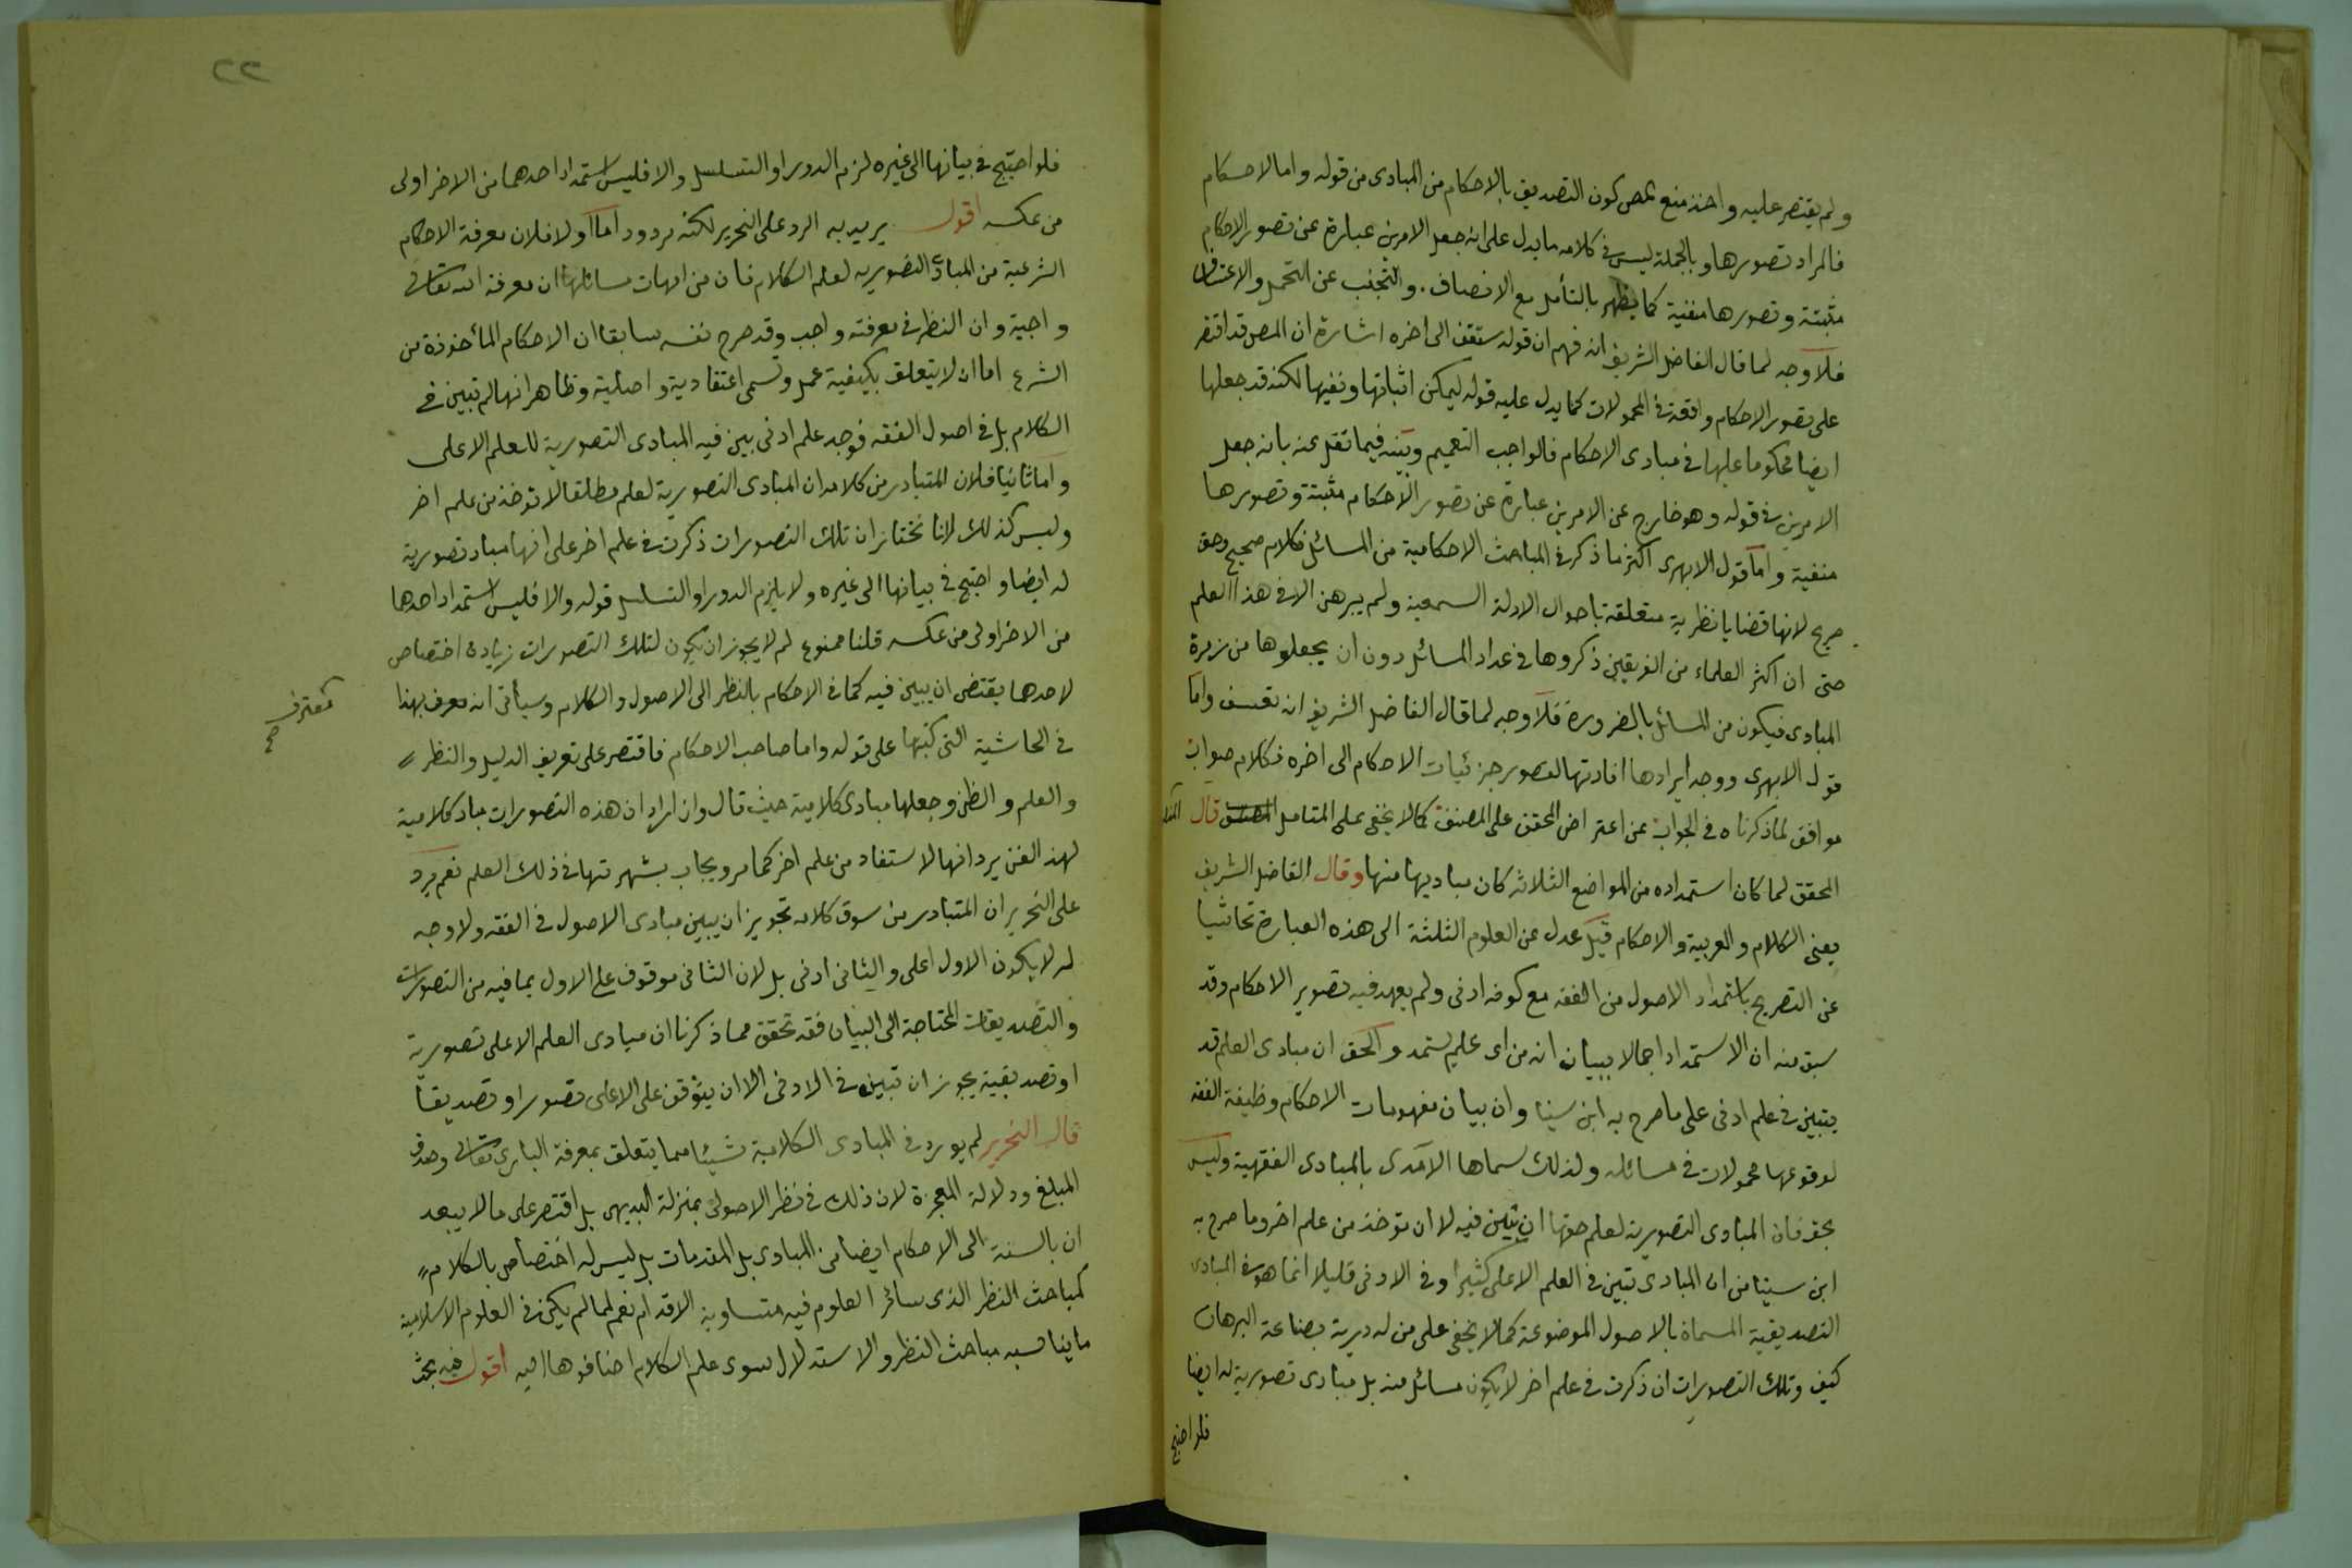 ولم يقتصر عليه واخذ منع كون التصديق بالاحكام من المبادى من قوله واما الاحكام
فالمراد تصورها وبالجملة ليس فى كلامه ما يدل على انه جعل الامرين عبارة عن تصور الاحكام
مثبتة وتصورها منفية كما يظهر بالتأمل مع الانصاف والتجنب عن التحمل والاعتساف
فلا وجه لما قال الفاضل الشريف انه فهم ان قوله ستقف الى اخره اشارة ان المص قد اقتصر
على تصور الاحكام واقعة فى المحمولات كما يدل عليه قوله ليمكن اثباتها ونفيها لكنه قد جعلها
ايضا محكوما عليها فى مبادى الاحكام فالواجب التعميم وبينه فيما نقل عنه بانه جعل
الامرين فى قوله وهو خارج عن الامرين عبارة عن تصور الاحكام مثبتة وتصورها
منفية واما قول الابهرى اكثر ما ذكر فى المباحث الاحكامية من المسائل فكلام صحيح وحق
صريح لانها قضايا نظرية متعلقة باحوال الادلة السمعية ولم يبرهن الا فى هذا العلم
حتى ان اكثر العلماء من الفريقين ذكروها فى عداد المسائل دون ان يجعلوها من زمرة
المبادى فيكون من المسائل بالضرورة فلا وجه لما قال الفاضل الشريف انه تعسف واما
قول الابهرى ووجه ايرادها افادتها لتصور جزئيات الاحكام الى اخره فكلام صواب
موافق لما ذكرناه فى الجواب عن اعتراض المحقق على المصنف كما لا يخفى على المتامل قال
المحقق لما كان استمداده من المواضع الثلاثة كان مباديها منها وقال الفاضل الشريف
يعنى الكلام والعربية والاحكام قيل عدل عن العلوم الثلثة الى هذه العبارة تحاشيا
عن التصريح باستمداد الاصول من الفقه مع كونه ادنى ولم يعهد فيه تصوير الاحكام وقد
سبق منه ان الاستمداد اجمالا ببيان انه من اى علم يستمد والحق ان مبادى العلم قد
يتبين فى علم ادنى على ما صرح به ابن سينا وان بيان مفهومات الاحكام وظيفة الفقه
لوقوعها محمولات فى مسائله ولذلك سماها الآمدى بالمبادى الفقهية وليس
بحق فان المبادى التصورية لعلم حقها ان تبين فيه لا ان توخذ من علم اخر وما صرح به
ابن سينا من ان المبادى تبين فى العلم الاعلى كثيرا وفى الادنى قليلا انما هو فى المبادى
التصديقية المسماة بالاصول الموضوعة كما لا يخفى على من له دربة بصناعة البرهان
كيف وتلك التصورات ان ذكرت فى علم اخر لا يكون مسائل منه بل مبادى تصورية له ايضا
فلو احتيج
٢٢
فلو احتيج فى بيانها الى غيره لزم الدور او التسلسل والا فليس استمداد احدهما من الاخر اولى
من عكسه اقول يريد به الرد على النحرير لكنه مردود اما اولا فلان معرفة الاحكام
الشرعية من المبادى التصورية لعلم الكلام فان من امهات مسائلها ان معرفة الله تعالى
واجبة وان النظر فى معرفته واجب وقد صرح نفسه سابقا ان الاحكام المأخوذة من
الشرع اما ان لا يتعلق بكيفية عمل وتسمى اعتقادية واصلية وظاهر انها لم تبين فى
الكلام بل فى اصول الفقه فوجد علم ادنى بين فيه المبادى التصورية للعلم الاعلى
واما ثانيا فلان المتبادر من كلامه ان المبادى التصورية لعلم مطلقا لا توخذ من علم اخر
وليس كذلك لانا نختار ان تلك التصورات ذكرت فى علم اخر على انها مباد تصورية
له ايضا واحتيج فى بيانها الى غيره ولا يلزم الدور او التسلسل قوله والا فليس استمداد احدهما
من الاخر اولى من عكسه قلنا ممنوع لم لا يجوز ان يكون لتلك التصورات زيادة اختصاص
لاحدهما يقتضى ان يبين فيه كما فى الاحكام بالنظر الى الاصول والكلام وسيأتى انه معرف بهذا
معترف صح
فى الحاشية التى كتبها على قوله واما صاحب الاحكام فاقتصر على تعريف الدليل والنظر
والعلم والظن وجعلها مبادى كلامية حيث قال وان اراد ان هذه التصورات مباد كلامية
لهذا الفن يرد انها لا تستفاد من علم اخر كما مر ويجاب بشهرتها فى ذلك العلم نعم يرد
على النحرير ان المتبادر من سوق كلامه تجويز ان يبين مبادى الاصول فى الفقه ولا وجه
له لا يكون الاول اعلى والثانى ادنى بل لان الثانى موقوف على الاول بما فيه من التصورات
والتصديقات المحتاجة الى البيان فقد تحقق مما ذكرنا ان مبادى العلم الاعلى تصورية
او تصديقية يجوز ان تبين فى الادنى الا ان يتوقف على الاعلى تصورا وتصديقا
قال النحرير لم يورد فى المبادى الكلامية شيئا مما يتعلق بمعرفة البارى تعالى وصدق
المبلغ ودلالة المعجزة لان ذلك فى نظر الاصولى بمنزلة البديهى بل اقتصر على ما لا يبعد
ان بالنسبة الى الاحكام ايضا من المبادى بل المقدمات بل ليس له اختصاص بالكلام
كمباحث النظر الذى سائر العلوم فيه متساوية الاقدام نعم لما لم يكن فى العلوم الاسلامية
ما يناسبه مباحث النظر والاستدلال سوى علم الكلام اضافوها اليه اقول فيه بحث